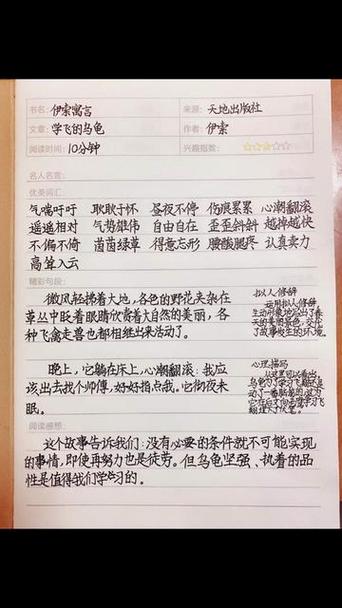 书名：伊索寓言 来源：天地出版社
文章：学飞的乌龟 作者：伊索
阅读时间：10分钟 兴趣指数：
名人名言：
优美词汇
气喘吁吁 耿耿于怀 昼夜不停 伤痕累累 心潮翻滚
遥遥相对 气势雄伟 自由自在 歪歪斜斜 越掉越快
不偏不倚 茵茵绿草 得意忘形 腰酸腿疼 认真卖力
高耸入云
精彩句段：
微风轻拂着大地，各色的野花夹杂在
草丛中眨着眼睛欣赏着大自然的美丽，各
种飞禽走兽也都相继出来活动了。
拟人修辞
运用拟人修辞，
生动形象地写出了春
天的美丽景色，交代
了故事发生的环境。
晚上，它躺在床上，心潮翻滚：我应
该出去找个师傅，好好指点我。它彻夜未
眠。
心理描写
从这里可以看出，
乌龟为了学习飞翔还是
阅读感想：
这个故事告诉我们：没有必要的条件就不可能实现
的事情，即使再努力也是徒劳。但乌龟坚强、执着的品
性是值得我们学习的。